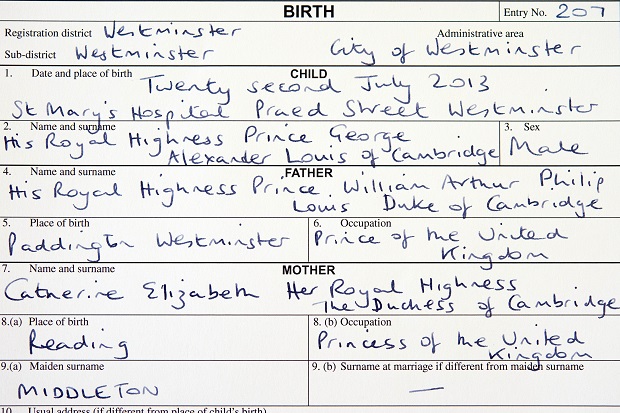 BIRTH
Entry No. 207
Registration district Westminster
Administrative area
Sub-district Westminster
City of Westminster
1. Date and place of birth
CHILD
Twenty second July 2013
St Mary's Hospital Praed Street Westminster
2. Name and surname
3. Sex
His Royal Highness Prince George
Alexander Louis of Cambridge
Male
4. Name and surname
FATHER
His Royal Highness Prince William Arthur Philip
Louis Duke of Cambridge
5. Place of birth
6. Occupation
Paddington Westminster
Prince of the United
Kingdom
7. Name and surname
MOTHER
Catherine Elizabeth Her Royal Highness
The Duchess of Cambridge
8.(a) Place of birth
8. (b) Occupation
Reading
Princess of the United
Kingdom
9.(a) Maiden surname
9. (b) Surname at marriage if different from maiden surname
MIDDLETON
—
10. Usual address (if different from place of child's birth)